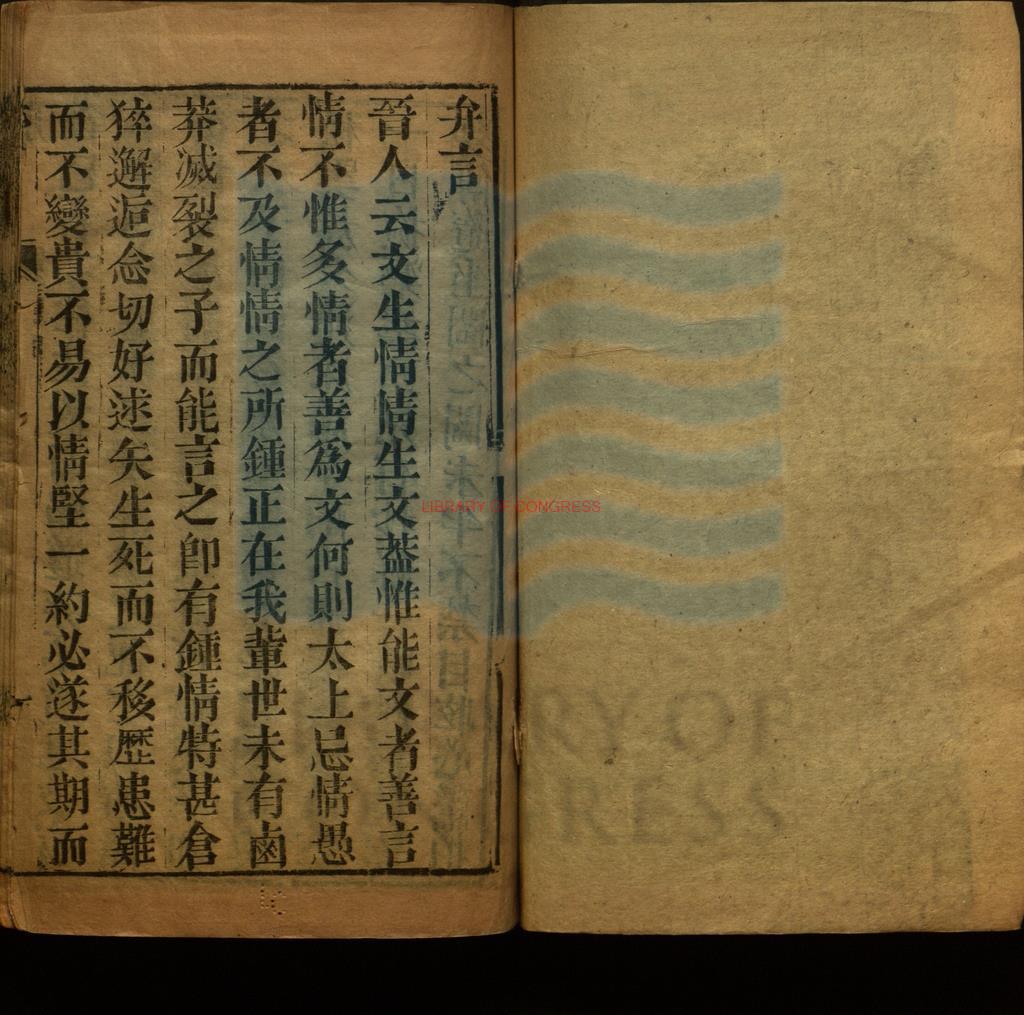 弁言
晉人云文生情情生文葢惟能文者善言
情不惟多情者善爲文何則太上忘情愚
者不及情情之所鍾正在我輩世未有鹵
莽滅裂之子而能言之卽有鍾情特甚倉
猝邂逅念切好逑矢生死而不移歷患難
而不變貴不易以情堅一約必遂其期而
LIBRARY OF CONGRESS